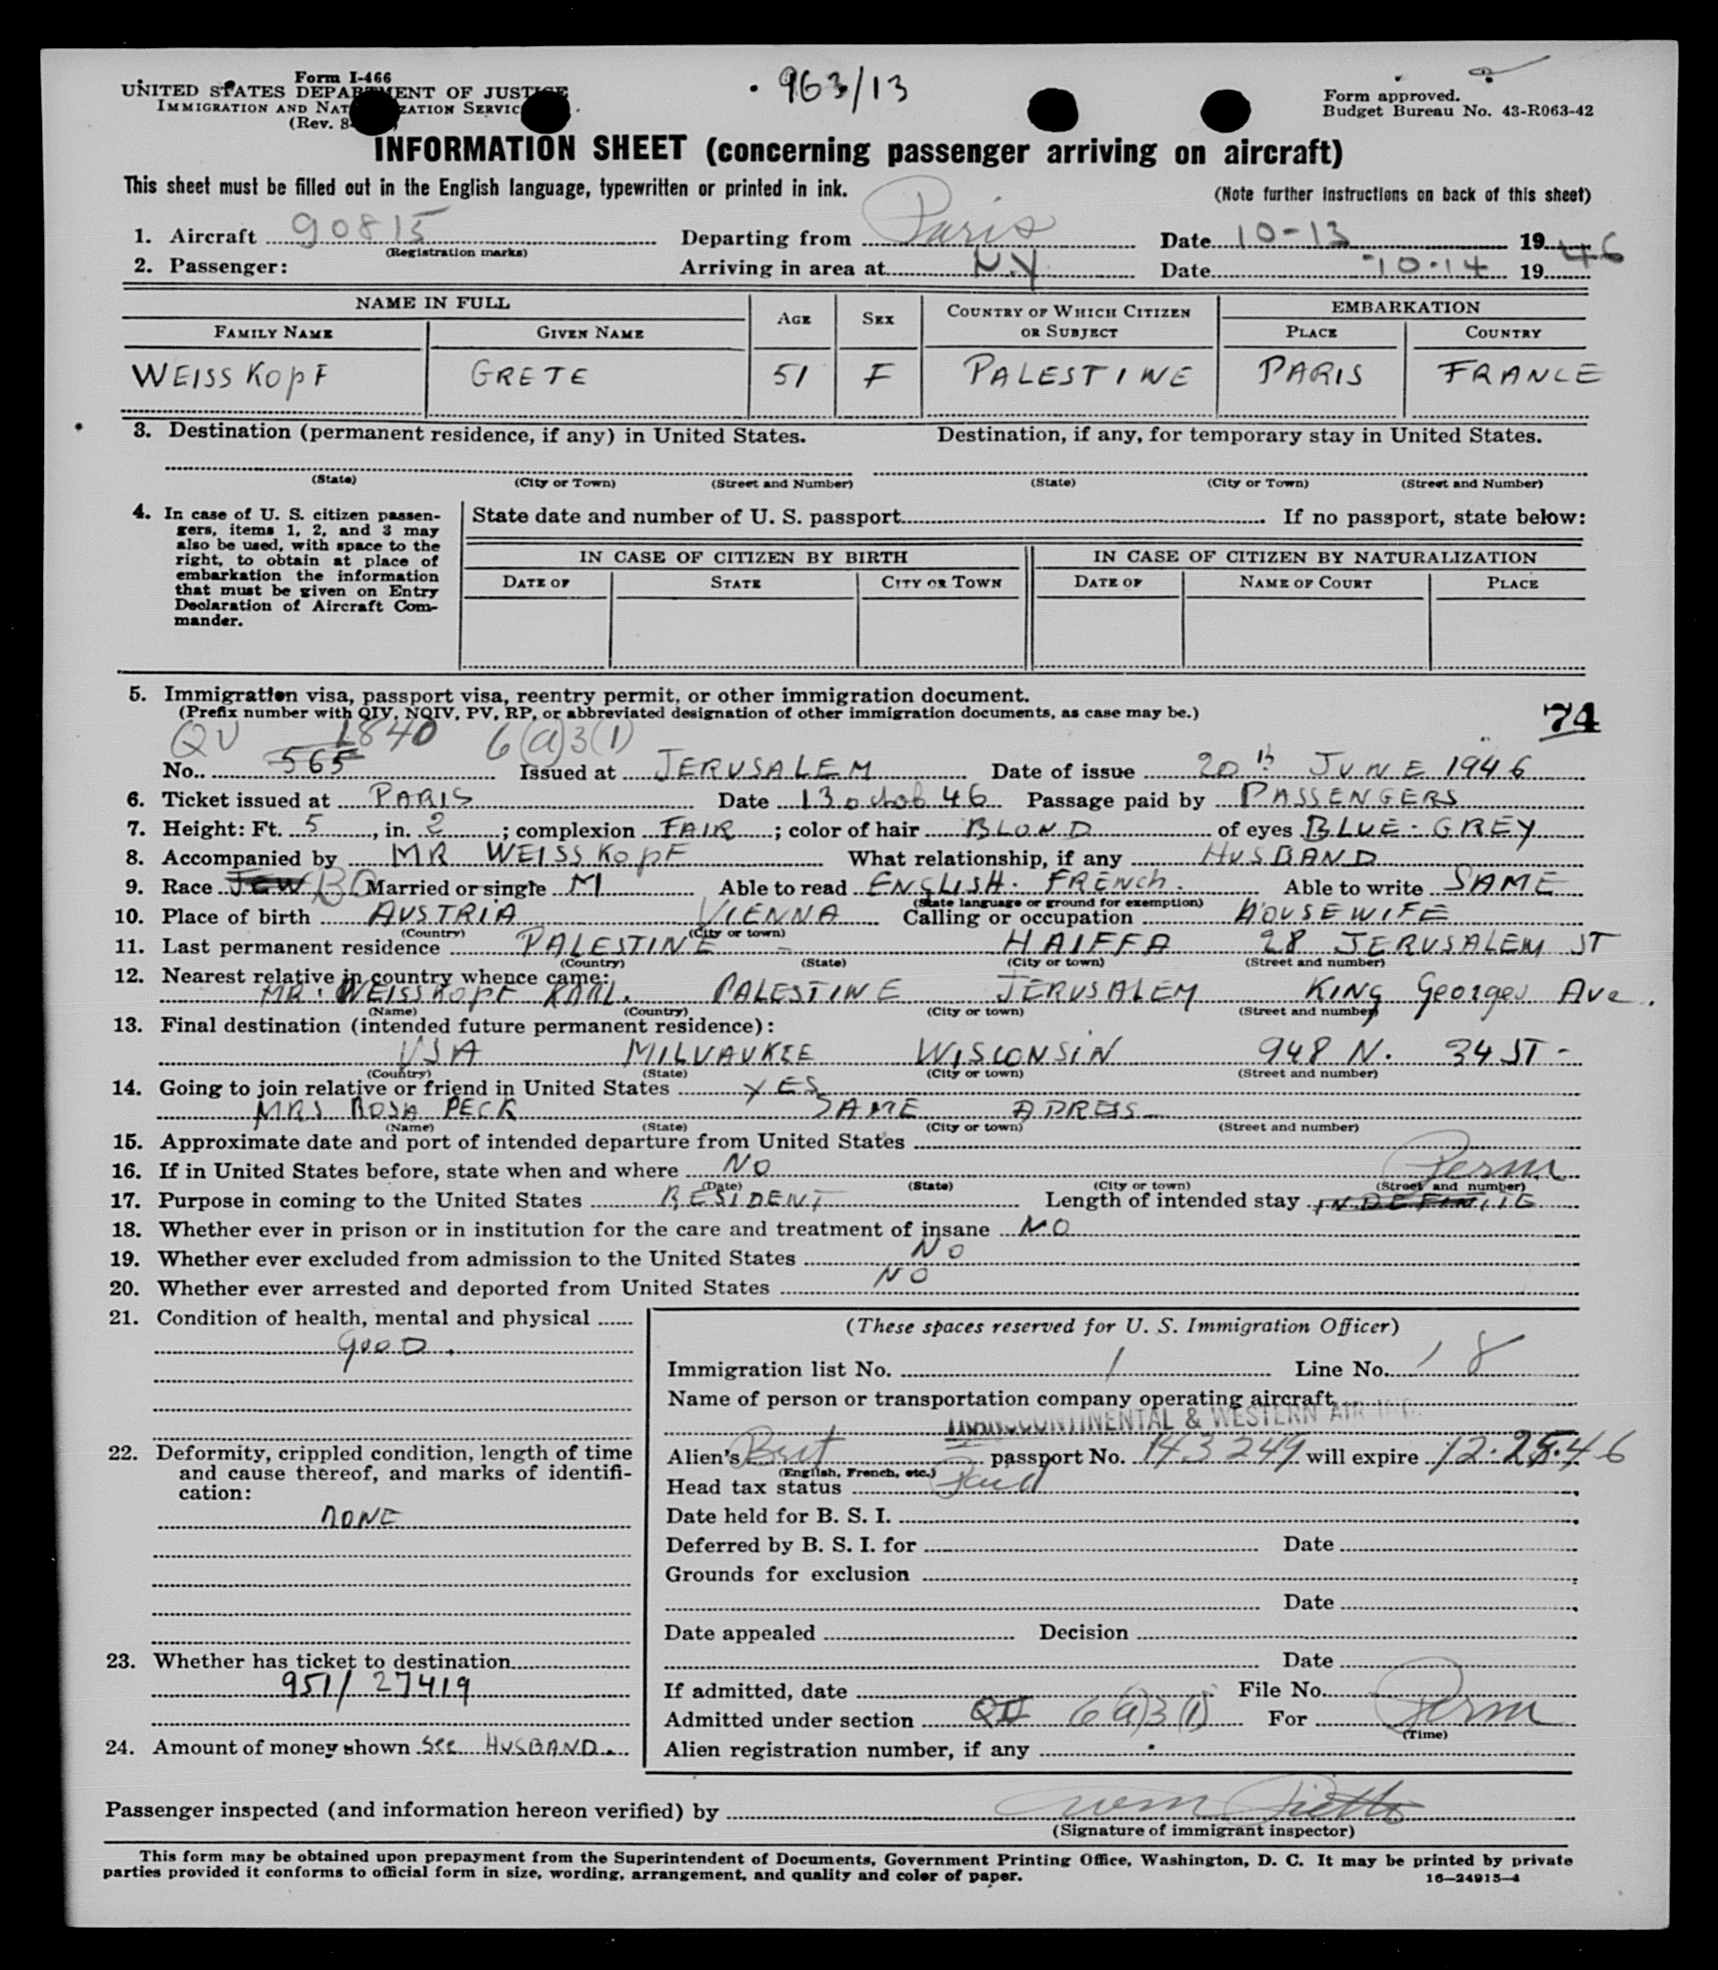 Form I-466
UNITED STATES DEPARTMENT OF JUSTICE
IMMIGRATION AND NATURALIZATION SERVICE
(Rev. 8-
963/13
Form approved.
Budget Bureau No. 43-R063-42
INFORMATION SHEET (concerning passenger arriving on aircraft)
This sheet must be filled out in the English language, typewritten or printed in ink. (Note further instructions on back of this sheet)
1. Aircraft 90815 Departing from Paris Date 10-13 19
(Registration marks)
2. Passenger: Arriving in area at N.Y Date 10-14 19 46
NAME IN FULL AGE SEX COUNTRY OF WHICH CITIZEN OR SUBJECT EMBARKATION
FAMILY NAME GIVEN NAME PLACE COUNTRY
WEISSKOpF GRETE 51 F PALESTINE PARIS FRANCE
3. Destination (permanent residence, if any) in United States. Destination, if any, for temporary stay in United States.
(State) (City or Town) (Street and Number) (State) (City or Town) (Street and Number)
4. In case of U. S. citizen passen-
gers, items 1, 2, and 3 may
also be used, with space to the
right, to obtain at place of
embarkation the information
that must be given on Entry
Declaration of Aircraft Com-
mander.
State date and number of U. S. passport If no passport, state below:
IN CASE OF CITIZEN BY BIRTH IN CASE OF CITIZEN BY NATURALIZATION
DATE OF STATE CITY OR TOWN DATE OF NAME OF COURT PLACE
5. Immigration visa, passport visa, reentry permit, or other immigration document.
(Prefix number with QIV, NQIV, PV, RP, or abbreviated designation of other immigration documents, as case may be.)
74
QV 1840 6(a)3(1)
No. 565 Issued at JERUSALEM Date of issue 20th JUNE 1946
6. Ticket issued at PARIS Date 13 octob 46 Passage paid by PASSENGERS
7. Height: Ft. 5, in. 2; complexion FAIR; color of hair BLOND of eyes BLUE-GREY
8. Accompanied by MR WEISSKOpF What relationship, if any HUSBAND
9. Race JEW Married or single M Able to read ENGLISH. FRENCH. Able to write SAME
(State language or ground for exemption)
10. Place of birth AUSTRIA VIENNA Calling or occupation HOUSEWIFE
(Country) (City or town)
11. Last permanent residence PALESTINE - HAIFFA 28 JERUSALEM ST
(Country) (State) (City or town) (Street and number)
12. Nearest relative in country whence came:
MR. WEISSKOpF KARL. PALESTINE JERUSALEM KING Georges Ave.
(Name) (Country) (City or town) (Street and number)
13. Final destination (intended future permanent residence):
USA MILVAUKEE WISCONSIN 948 N. 34 ST-
(Country) (State) (City or town) (Street and number)
14. Going to join relative or friend in United States YES
MRS ROSA PECK SAME ADRESS
(Name) (State) (City or town) (Street and number)
15. Approximate date and port of intended departure from United States
16. If in United States before, state when and where NO Perm
(Date) (State) (City or town) (Street and number)
17. Purpose in coming to the United States RESIDENT Length of intended stay INDEFINITE
18. Whether ever in prison or in institution for the care and treatment of insane NO
19. Whether ever excluded from admission to the United States NO
20. Whether ever arrested and deported from United States NO
21. Condition of health, mental and physical
gooD.
22. Deformity, crippled condition, length of time
and cause thereof, and marks of identifi-
cation:
NONE
23. Whether has ticket to destination
951/ 27419
24. Amount of money shown See HUSBAND.
(These spaces reserved for U. S. Immigration Officer)
Immigration list No. 1 Line No. 8
Name of person or transportation company operating aircraft
TRANSCONTINENTAL & WESTERN AIR INC.
Alien's Brit passport No. 143249 will expire 12-25-46
(English, French, etc.)
Head tax status Paid
Date held for B. S. I.
Deferred by B. S. I. for Date
Grounds for exclusion
Date
Date appealed Decision
Date
If admitted, date File No.
Admitted under section 6(a)3(1) For Perm
(Time)
Alien registration number, if any
Passenger inspected (and information hereon verified) by
(Signature of immigrant inspector)
This form may be obtained upon prepayment from the Superintendent of Documents, Government Printing Office, Washington, D. C. It may be printed by private
parties provided it conforms to official form in size, wording, arrangement, and quality and color of paper. 16—24915-4